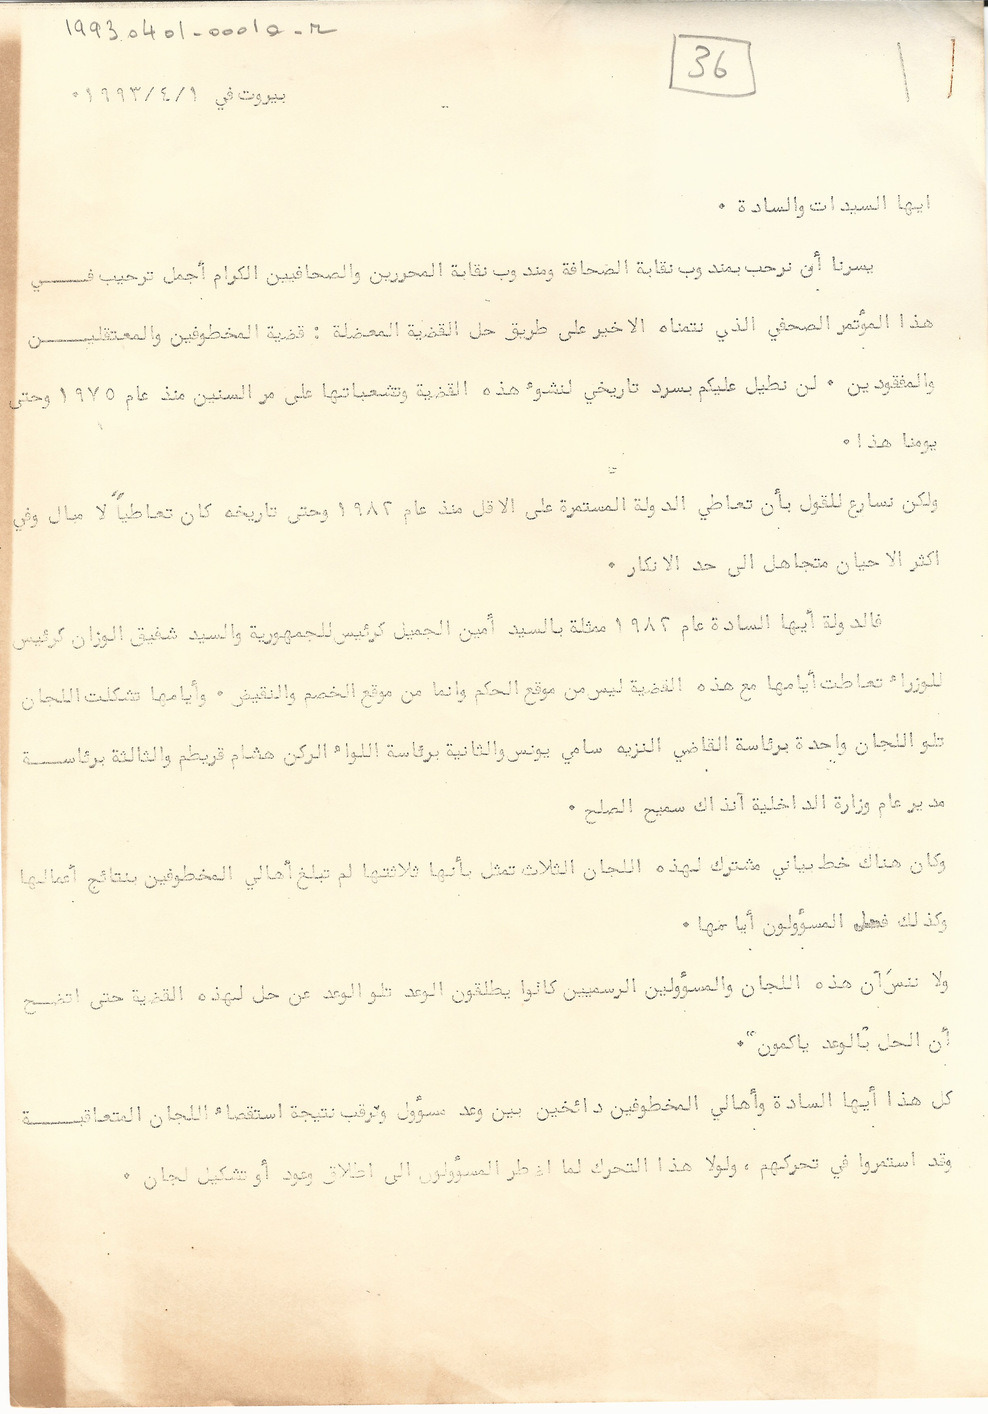 19930401-00010-m
36
بيروت في ١/٤/١٩٩٣٠
ايها السيدات والسادة ٠
يسرنا أن نرحب بمندوب نقابة الصحافة ومندوب نقابة المحررين والصحافيين الكرام أجمل ترحيب فــــي
هذا المؤتمر الصحفي الذي نتمناه الاخير على طريق حل القضية المعضلة : قضية المخطوفين والمعتقليـــــن
والمفقودين ٠ لن نطيل عليكم بسرد تاريخي لنشوء هذه القضية وتشعباتها على مر السنين منذ عام ١٩٧٥ وحتى
يومنا هذا ٠
ولكن نسارع للقول بأن تعاطي الدولة المستمرة على الاقل منذ عام ١٩٨٢ وحتى تاريخه كان تعاطياً لا مبال وفي
اكثر الاحيان متجاهل الى حد الانكار ٠
فالدولة أيها السادة عام ١٩٨٢ ممثلة بالسيد أمين الجميل كرئيس للجمهورية والسيد شفيق الوزان كرئيس
للوزراء تعاطت أيامها مع هذه القضية ليس من موقع الحكم وانما من موقع الخصم والنقيض ٠ وأيامها تشكلت اللجان
تلو اللجان واحدة برئاسة القاضي النزيه سامي يونس والثانية برئاسة اللواء الركن هشام قريطم والثالثة برئاســـة
مدير عام وزارة الداخلية آنذاك سميح الصلح ٠
وكان هناك خط بياني مشترك لهذه اللجان الثلاث تمثل بأنها ثلاثتها لم تبلغ أهالي المخطوفين بنتائج أعمالها
وكذلك فعل المسؤولون أيامها ٠
ولا ننسَ آن هذه اللجان والمسؤولين الرسميين كانوا يطلقون الوعد تلو الوعد عن حل لهذه القضية حتى اتضــح
أن الحل "بالوعد ياكمون"٠
كل هذا أيها السادة وأهالي المخطوفين دائخين بين وعد مسؤول وترقب نتيجة استقصاء اللجان المتعاقبـــــة
وقد استمروا في تحركهم ، ولولا هذا التحرك لما اضطر المسؤولون الى اطلاق وعود أو تشكيل لجان ٠